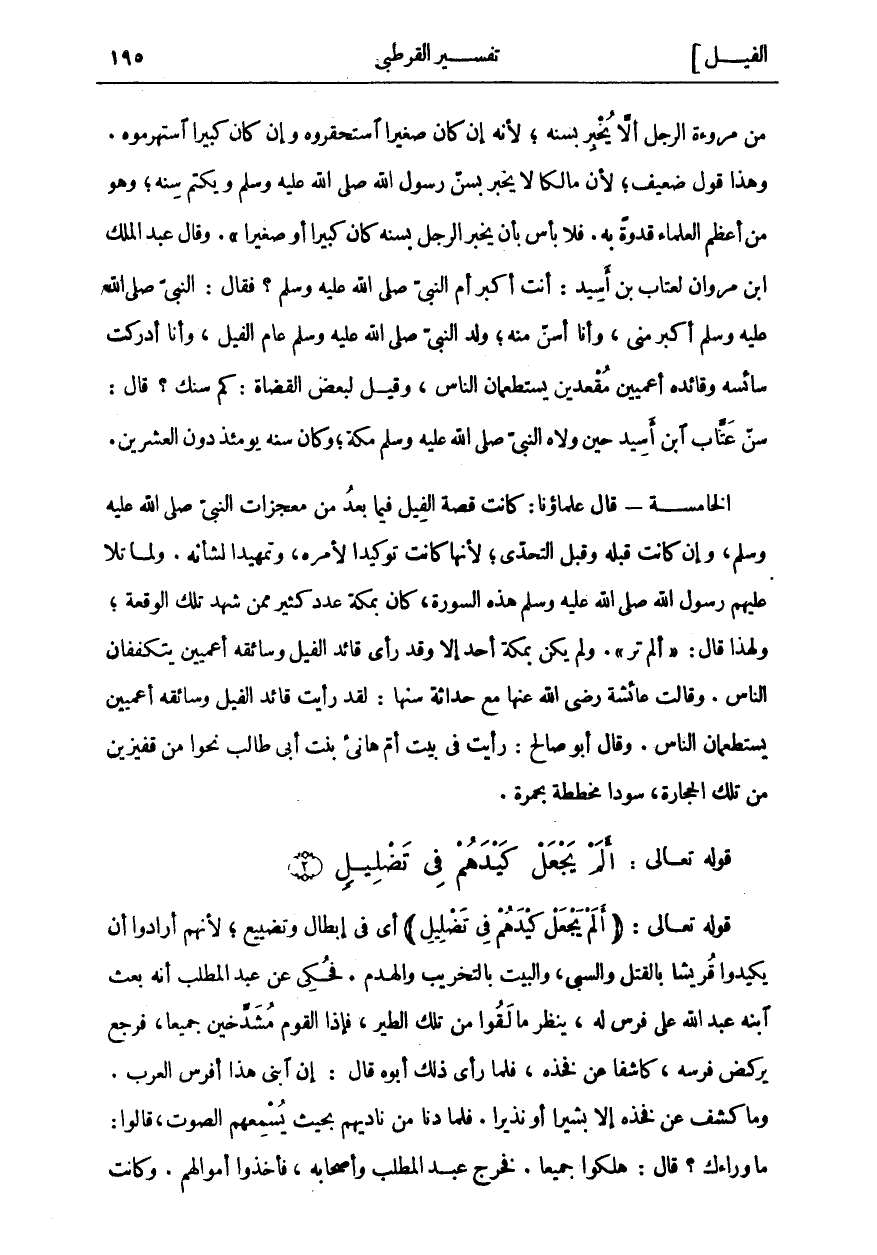 الفيل]
تفسير القرطبى
١٩٥
من مروءة الرجل ألَّا يُخْبِر بسنه ؛ لأنه إن كان صغيرا آستحقروه وإن كان كبيرا آستهرموه .
وهذا قول ضعيف؛ لأن مالكا لا يخبر بسنّ رسول الله صلى الله عليه وسلم ويكتم سِنه؛ وهو
من أعظم العلماء قدوةً به . فلا بأس بأن يخبر الرجل بسنه كان كبيرا أو صغيرا » . وقال عبد الملك
ابن مروان لعتاب بن أَسِيد : أنت أكبر أم النبىّ صلى الله عليه وسلم ؟ فقال : النبىّ صلى الله
عليه وسلم أكبر منى ، وأنا أسنّ منه؛ ولد النبىّ صلى الله عليه وسلم عام الفيل ، وأنا أدركت
سائسه وقائده أعميين مُقْعدين يستطعمان الناس ، وقيل لبعض القضاة : كم سنك ؟ قال :
سنّ عَتَّاب آبن أَسِيد حين ولاه النبىّ صلى الله عليه وسلم مكة؛ وكان سنه يومئذ دون العشرين.
الخامسة — قال علماؤنا: كانت قصة الفِيل فيما بعدُ من معجزات النبىّ صلى الله عليه
وسلم، وإن كانت قبله وقبل التحدّى؛ لأنها كانت توكيدا لأمره، وتمهيدا لشأنه . ولما تلا
عليهم رسول الله صلى الله عليه وسلم هذه السورة، كان بمكة عدد كثير ممن شهد تلك الوقعة ؛
ولهذا قال: « ألم تر». ولم يكن بمكة أحد إلا وقد رأى قائد الفيل وسائقه أعميين يتكففان
الناس . وقالت عائشة رضى الله عنها مع حداثة سنها : لقد رأيت قائد الفيل وسائقه أعميين
يستطعمان الناس . وقال أبو صالح : رأيت فى بيت أمّ هانئ بنت أبى طالب نحوا من قفيزين
من تلك الحجارة، سودا مخططة بحمرة .
قوله تعالى : أَلَمْ يَجْعَلْ كَيْدَهُمْ فِى تَضْلِيلٍ ﴿٢﴾
قوله تعالى : ﴿ أَلَمْ يَجْعَلْ كَيْدَهُمْ فِى تَضْلِيلٍ ﴾ أى فى إبطال وتضييع ؛ لأنهم أرادوا أن
يكيدوا قُريشا بالقتل والسبى، والبيت بالتخريب والهدم . فحُكِى عن عبد المطلب أنه بعث
آبنه عبد الله على فرس له ، ينظر ما لَقُوا من تلك الطير ، فإذا القوم مُشَدَّخين جميعا، فرجع
يركض فرسه ، كاشفا عن فخذه ، فلما رأى ذلك أبوه قال : إن آبنى هذا أفرس العرب .
وما كشف عن فخذه إلا بشيرا أو نذيرا . فلما دنا من ناديهم بحيث يُسْمِعهم الصوت، قالوا:
ما وراءك ؟ قال : هلكوا جميعا . فخرج عبد المطلب وأصحابه ، فأخذوا أموالهم . وكانت